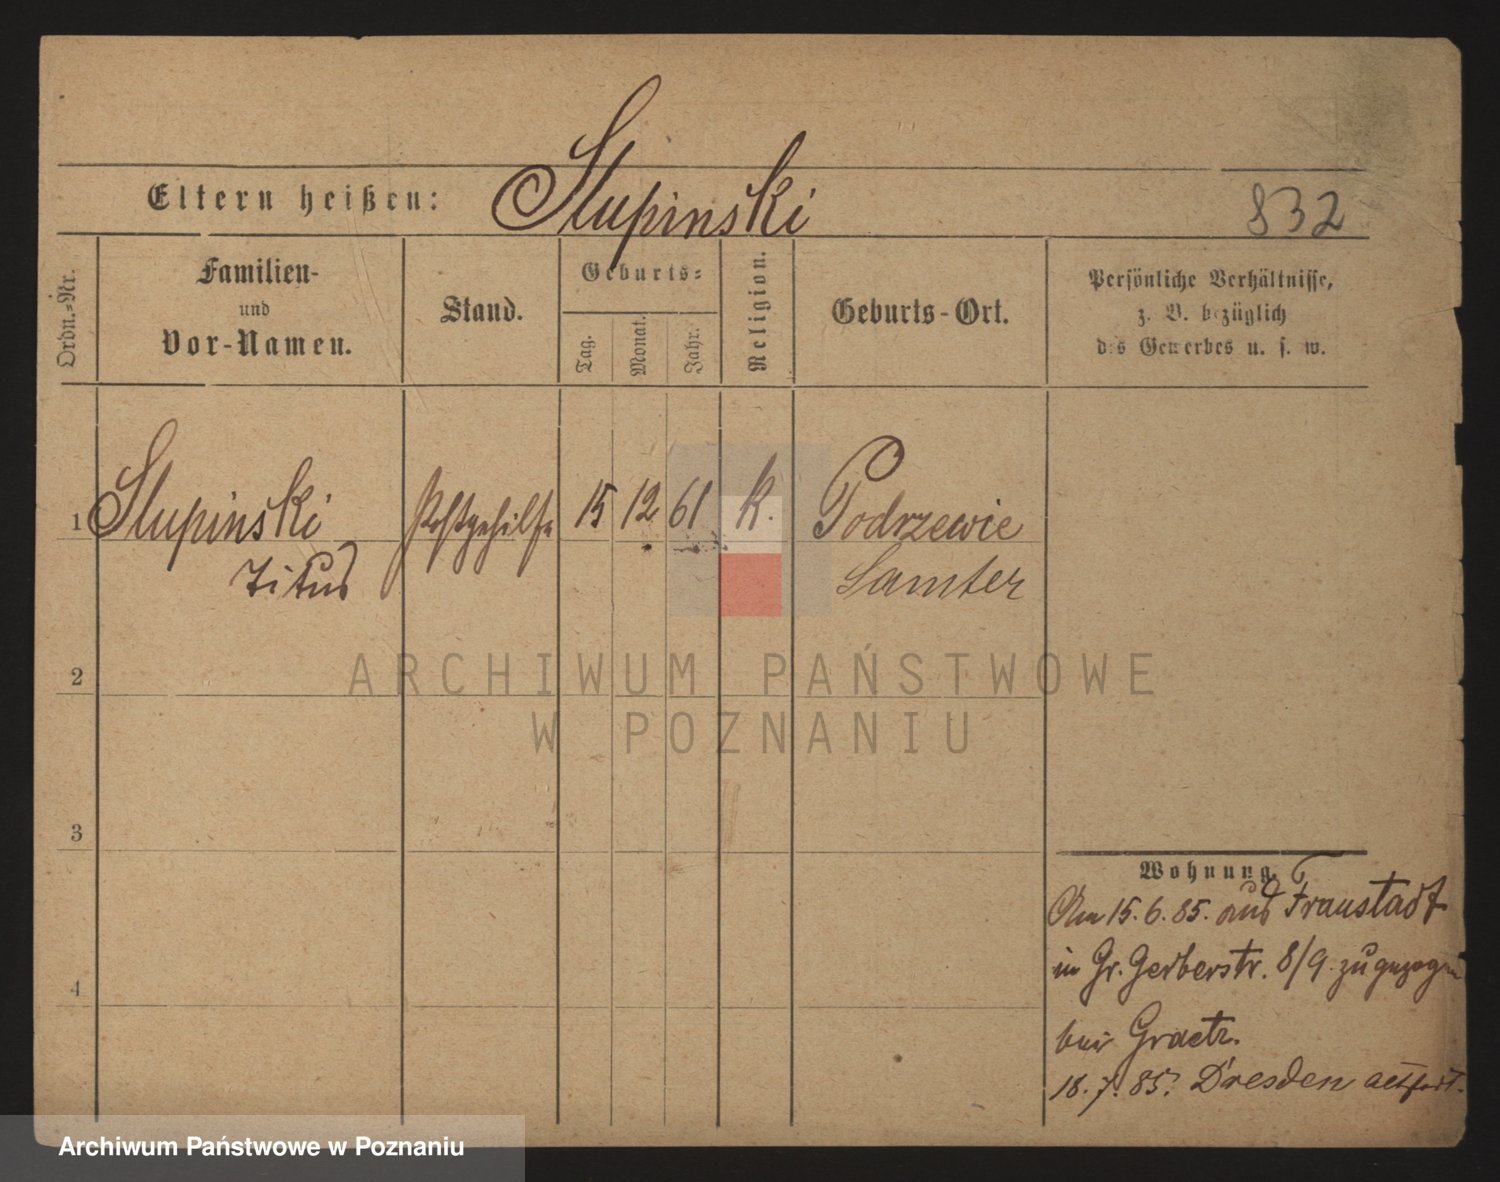 Eltern heißen: Slupinski 832
Ordn.-Nr.
Familien-
und
Vor-Namen.
Stand.
Geburts-
Tag.
Monat.
Jahr.
Religion.
Geburts-Ort.
Persönliche Verhältnisse,
z. B. bezüglich
des Gewerbes u. s. w.
1 Slupinski Postgehilfe 15 12 61 k. Podrzewie
Titus Samter
ARCHIWUM PAŃSTWOWE
W POZNANIU
2
3
4
Wohnung.
Am 15.6.85. aus Fraustadt
in Gr. Gerberstr. 8/9. zugezogen
bei Graetz.
18.7.85. Dresden
Archiwum Państwowe w Poznaniu